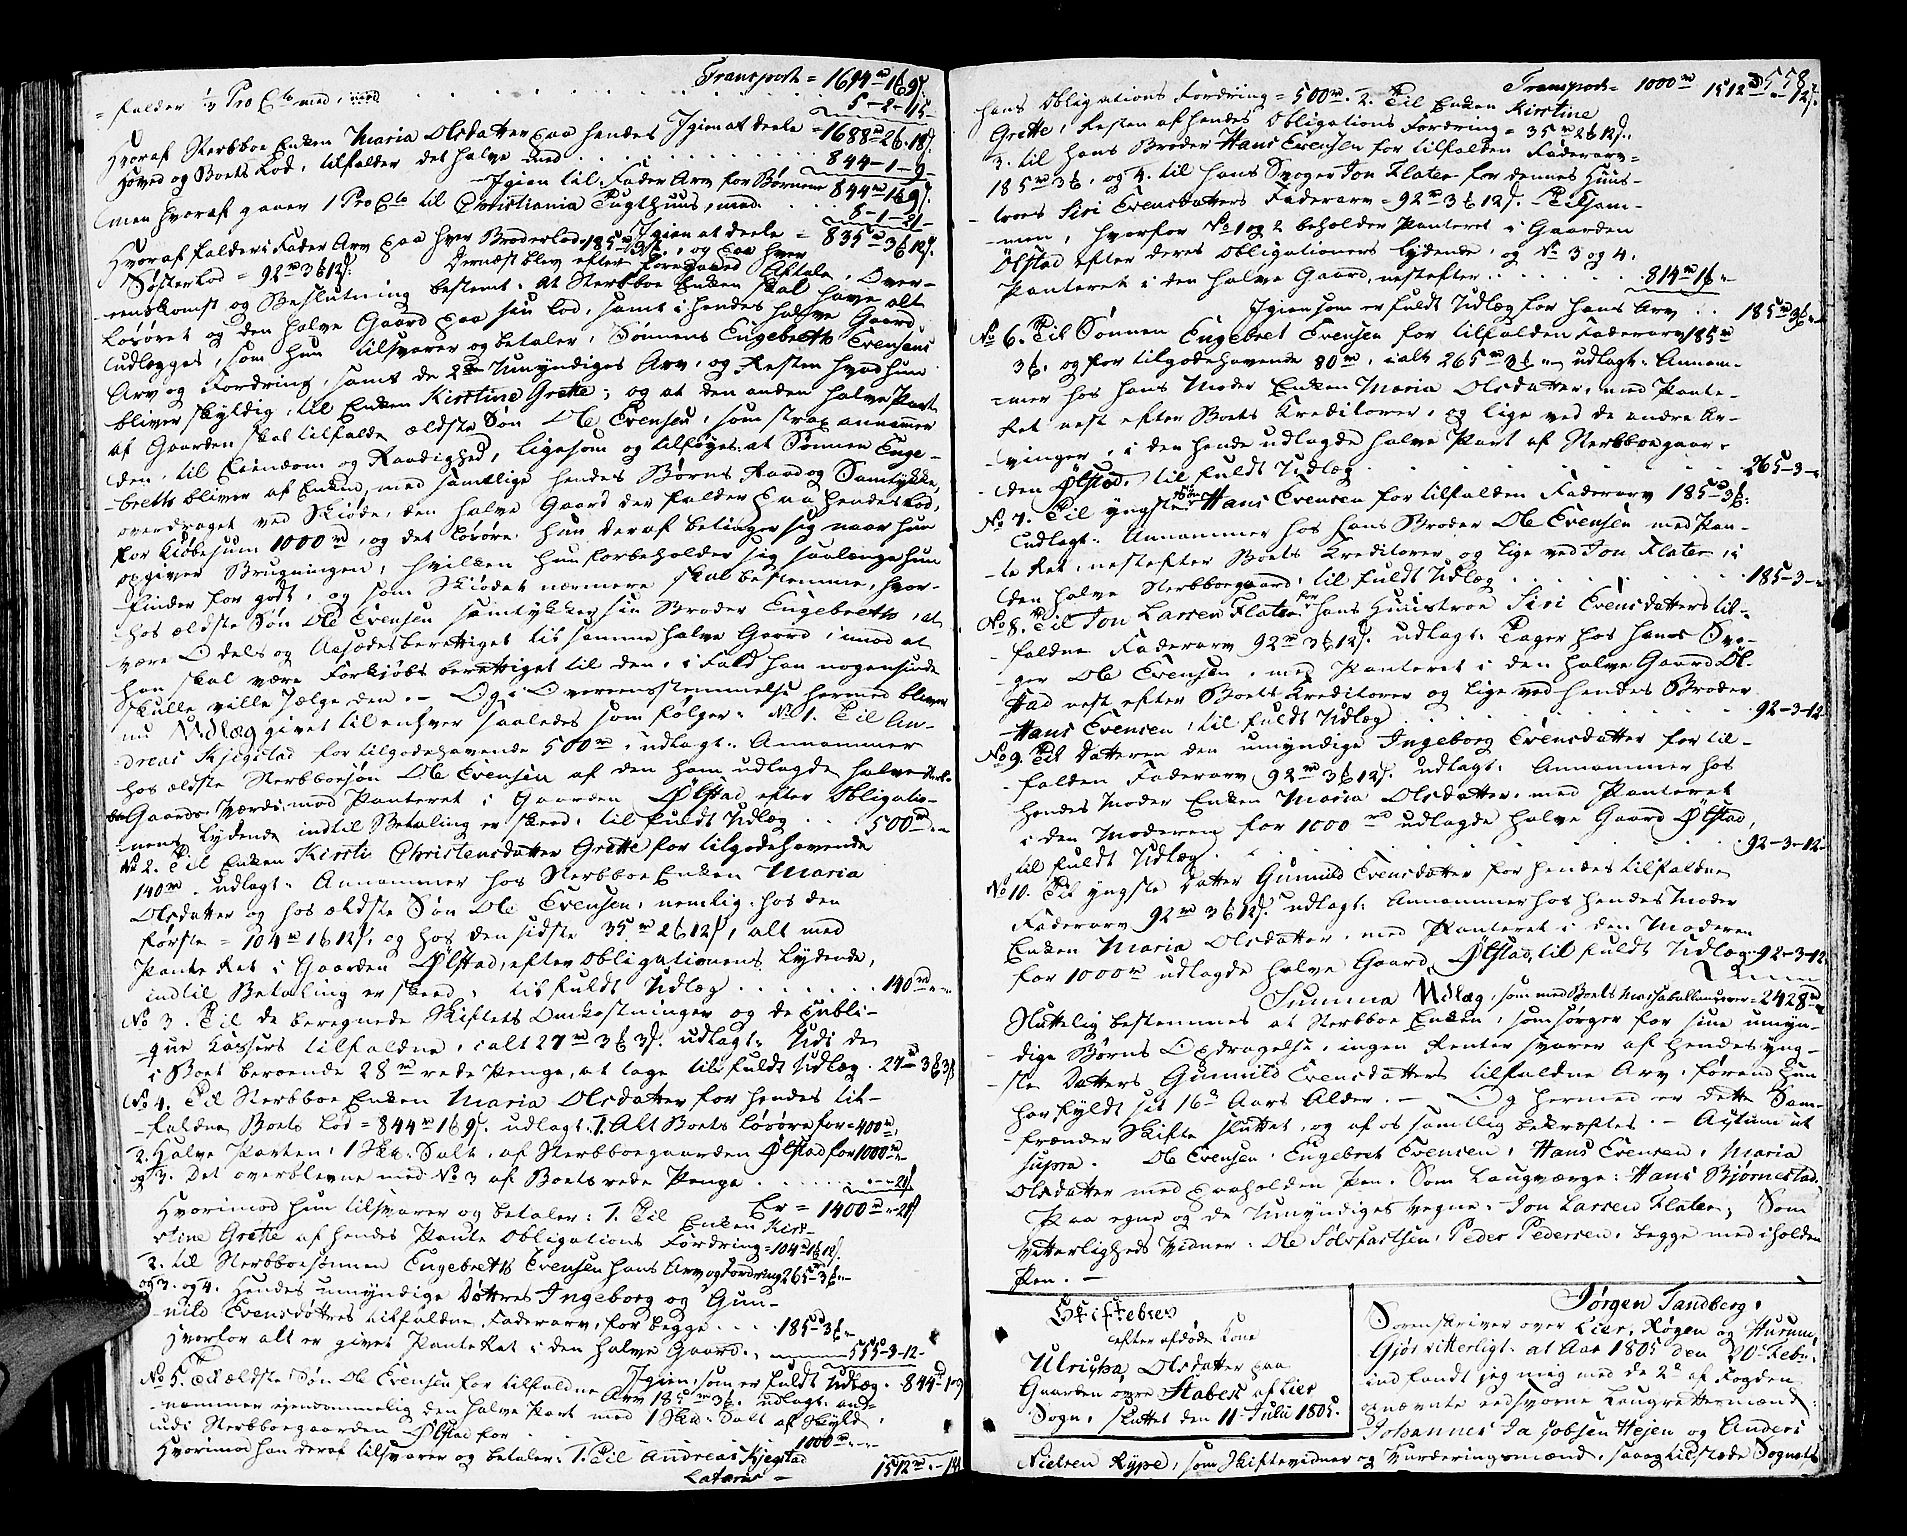 Transport = 1694 rd 1 ß 9 s.
falder ½ Pro Cto med
5 - 2 - 15 -
Igien at deele = 1688 rd 2 ß 18 s.
Hvoraf Sterbboe Enken Maria Olsdatter paa hendes
Hoved og Boets Lod, tilfalder det halve med . . . 844 - 1 - 9 -
Igien til Fader Arv for Børnene 844 rd 1 ß 9 s.
men hvoraf gaaer 1 Pro Cto til Christiania Tugthuus, med . . 8 - 1 - 21 -
Igien at deele = 835 rd 3 ß 12 s.
Hvoraf falder i Fader Arv paa hver Broderlod 185 rd 3 ß, og paa hver
Søsterlod = 92 rd 3 ß 12 s.
Dernæst blev efter foregaaed Aftale, Over-
eenskomst og Beslutning bestemt: At Sterbboe Enken skal have alt
Løsøret og den halve Gaard paa sin Lod, samt i hendes halve Gaard
udlægges, som hun tilsvarer og betaler, Sønnens Engebreth Evensens
Arv og Fordring, samt de 2de Umyndiges Arv, og Resten hvad hun
bliver skyldig, til Enken Kirstine Grette; og at den anden halve Part
af Gaarden skal tilfalde ældste Søn Ole Evensen, som strax annammer
den til Eiendom og Raadighed, ligesom og tilføyes at Sønnen Enge-
breth bliver af Enken med samtlige hendes Børns Raad og Samtykke,
overdraget ved Skiøde, den halve Gaard der falder paa hendes Lod,
for Kiøbesum 1000 rd, og det Løsøre hun deraf betinger sig naar hun
opgiver Brugningen, hvilken hun forbeholder sig saalænge hun
finder for godt, og som Skiødet nærmere skal bestemme, hvor-
hos ældste Søn Ole Evensen samtykker sin Broder Engebreth, at
være Odels og Aasædesberettiget til samme halve Gaard, imod at
han skal være Forkjøbs berettiget til den, i Fald han nogensinde
skulle ville sælge den. - Og i Overeensstemmelse hermed bliver
nu Udlæg givet til enhver saaledes som følger: No. 1. Til An-
dreas Kjegstad for tilgodehavende 500 rd, udlagt: Annammer
hos ældste Sterbboesøn Ole Evensen af den ham udlagde halve Sterb-
boe Gaards Værdi med Panteret i Gaarden Ølstad efter Obligatio-
nens Lydende indtil Betaling er skeed, til fuldt Udlæg . . 500 rd - -
No 2. Til Enken Kirsti Christensdatter Grette for tilgodehavende
140 rd. udlagt: Annammer hos Sterbboe Enken Maria
Olsdatter og hos ældste Søn Ole Evensen, nemlig: hos den
første = 104 rd 1 ß 12 s, og hos den sidste 35 rd 2 ß 12 s, alt med
Pante Ret i Gaarden Ølstad, efter Obligationens Lydende,
indtil Betaling er skeed, til fuldt Udlæg . . . . . 140 rd - -
No 3. Til de beregnede Skiftets Omkostninger og de publi-
que Cassers tilfaldne, ialt 27 rd 3 ß 3 s. udlagt: Udi de
i Boet beroende 28 rd rede Penge, at tage til fuldt Udlæg . 27 - 3 ß 3 s
No 4. Til Sterbboe Enken Maria Olsdatter for hendes til-
faldne Boets Lod = 844 rd 1 ß 9 s. udlagt: 1. Alt Boets Løsøre for = 400 rd,
2. Halve Parten: 1 Skd. Salt, af Sterbboegaarden Ølstad for 1000 rd - -
og 3. Det overblevne med No 3 af Boets rede Penge . . . . - - 21.
Er = 1400 rd - 21
Hvorimod hun tilsvarer og betaler: 1. Til Enken Kirs-
tine Grette af hendes Pante Obligations Fordring = 104 rd 1 ß 12 s.
2. til Sterbboesønnen Engebreth Evensen hans Arv og Fordring 265 - 3 ß -
og 3. og 4. Hendes umyndige Døttres Ingeborg og Gun-
nild Evensdøttres tilfaldne Faderarv, for begge . . . 185 - 3 ß -
Hvorfor alt er givet Pante Ret i den halve Gaard. 555 - 3 - 12 -
Igien, som er fuldt Udlæg . 844 - 1 - 9
No 5. Til ældste Søn Ole Evensen for tilfaldne Arv 185 rd 3 ß. udlagt: an-
nammer eiendommelig den halve Part med 1 Skd. Salt af Skyld,
udi Sterbboegaarden Ølstad for . . . 1000 rd - -
Hvorimod han deraf tilsvarer og betaler: 1. Til Andreas Kjegstad
Lateres - 1512 rd - 12
558
Transport = 1000 rd 1512 rd - 12 s.
hans Obligations Fordring = 500 rd. 2. Til Enken Kirstine
Grette, Resten af hendes Obligations Fordring = 35 rd 2 ß 12 s.
3. til hans Broder Hans Evensen for tilfalden Faderarv =
185 rd 3 ß, og 4. til hans Svoger Jon Flater for dennes Huus-
troes Siri Evensdatters Faderarv = 92 rd 3 ß 12 s. Tilsam-
men, hvorfor No 1 og 2 beholder Panteret i Gaarden
Ølstad efter deres Obligationers Lydende, og No 3 og 4.
Panteret i den halve Gaard, nestefter . . . . . 814 rd 1 ß -
Igien som er fuldt Udlæg for hans Arv . . 185 rd 3 ß -
No 6. Til Sønnen Engebret Evensen for tilfalden Faderarv 185 rd
3 ß, og for tilgodehavende 80 rd, ialt 265 rd 3 ß - udlagt: Annam-
mer hos hans Moder Enken Maria Olsdatter, med Pante-
Ret nest efter Boets Kreditorer, og lige ved de andre Ar-
vinger, i den hende udlagde halve Part af Sterbboegaar-
den Ølstad, til fuldt Udlæg . . . . . 265 - 3 - -
No 7. Til yngste Søn Hans Evensen for tilfalden Faderarv 185 rd 3 ß.
udlagt: Annammer hos hans Broder Ole Evensen med Pan-
te Ret, nestefter Boets Kreditorer og lige ved Jon Flater, i
den halve Sterbboegaard, til fuldt Udlæg . . . . 185 - 3 - -
No 8. Til Jon Larsen Flater for hans Huustroe Siri Evensdatters til-
faldne Faderarv 92 rd 3 ß 12 s. udlagt: Tager hos hans Svo-
ger Ole Evensen, med Panteret i den halve Gaard Øl-
stad nest efter Boets Kreditorer og lige ved hendes Broder
Hans Evensen, til fuldt Udlæg . . . . . 92 - 3 - 12 -
No 9. Til Datteren den umyndige Ingeborg Evensdatter for til-
falden Faderarv 92 rd 3 ß 12 s. udlagt: Annammer hos
hendes Moder Enken Maria Olsdatter, med Panteret
i den Moderen for 1000 rd udlagde halve Gaard Ølstad,
til fuldt Udlæg . . . . . 92 - 3 - 12 -
No 10. Til yngste Datter Gunnild Evensdatter for hendes tilfaldne
Faderarv 92 rd 3 ß 12 s. udlagt: Annammer hos hendes Moder
Enken Maria Olsdatter, med Panteret i den Moderen
for 1000 rd udlagde halve Gaard Ølstad, til fuldt Udlæg . 92 - 3 - 12
Summa Udlæg, som med Boets Massa ballancerer = 2428 rd -
Sluttelig bestemmes at Sterbboe Enken, som sørger for sine umyn-
dige Børns Opdragelse, ingen Renter svarer af hendes yng-
ste Datters Gunnild Evensdatters tilfaldne Arv, førend hun
har fyldt sit 16de Aars Alder. - Og hermed er dette Sam-
frænder Skifte sluttet, og af os samtlig bekræftes. - Actum ut
supra. Ole Evensen, Engebret Evensen, Hans Evensen, Maria
Olsdatter med paaholden Pen. Som Laugværge: Hans Bjørnestad.
Paa egne og de Umyndiges Vegne: Jon Larsen Flater, Som
Vitterligheds Vidner: Ole Solvfastsen, Peder Pedersen, begge med iholden
Pen. -
Skiftebrev
efter afdøde Kone
Ulricha Olsdatter paa
Gaarden øvre Stabek af Lier
Sogn, sluttet den 11 Julii 1805.
Jørgen Sandberg,
Sorenskriver over Lier, Røgen og Hurum,
Gjør vitterligt: at Aar 1805 den 20 Febr.
indfandt jeg mig med de 2de af Fogden
opnævnte eedsvorne Laugrettesmænd:
Johannes Jacobsen Hejen og Anders
Nielsen Rype, som Skiftevidner og Vurderingsmænd, saa og tilstæde Sognets